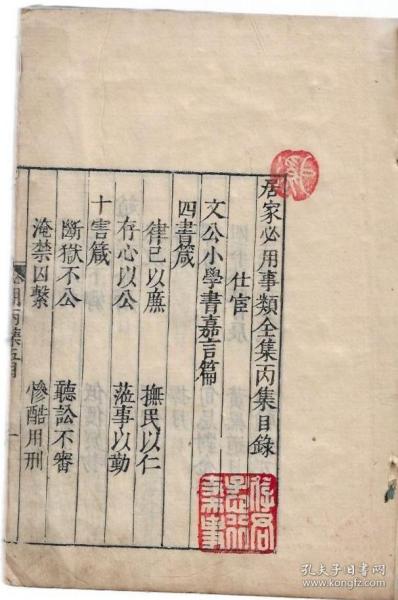 居家必用事類全集丙集目錄
仕宦
文公小學書嘉言篇
四書箴
律己以廉 撫民以仁
存心以公 蒞事以勤
十害箴
斷獄不公 聽訟不審
淹禁囚繫 慘酷用刑
丙集目 一
孔夫子旧书网
kongfz.com